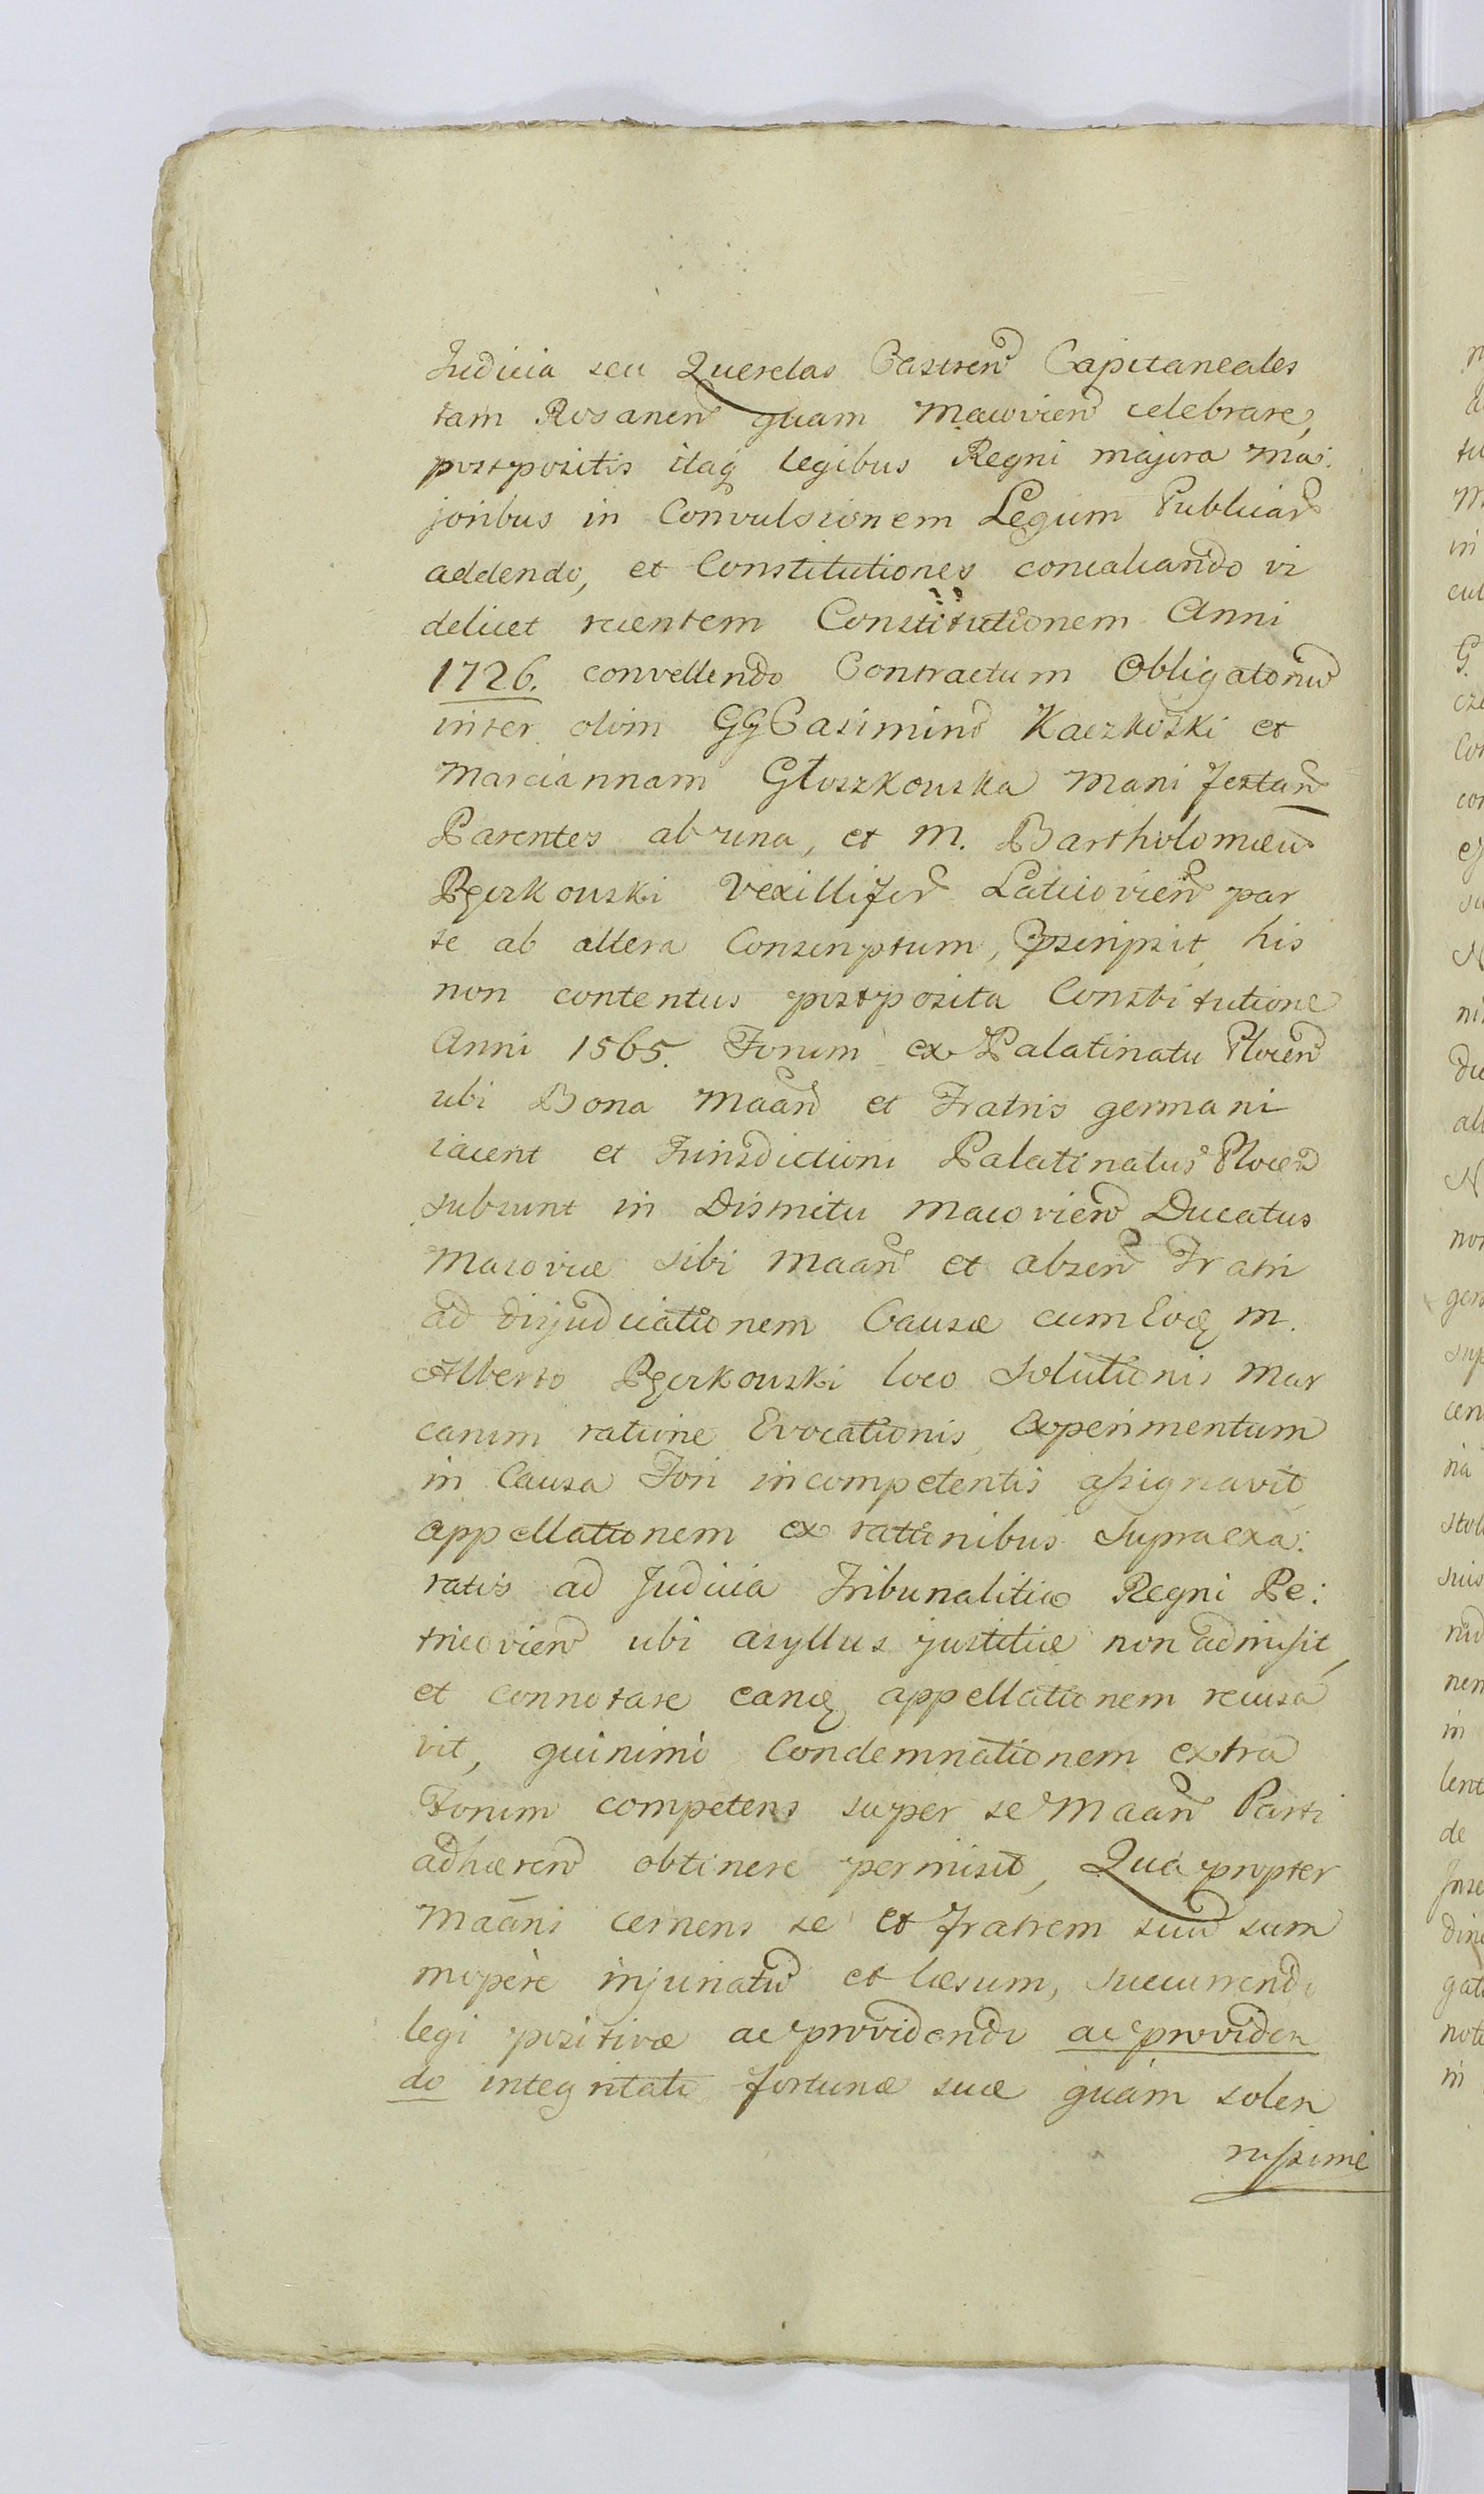 Judicia seu Querelas Castren Capitaneales
tam Rosanen quam Macovien celebrare,
postpositis itaq legibus Regni majora ma:
joribus in Convulsionem Legum Publicar
addendo, et Constitutiones concalcando vi
delicet recentem Constitutionem Anni
1726. convellendo Contractum Obligatoriu
inter olim GG Casimiru Kaczkoski et
Marciannam Głoszkouska Manifestan
Parentes ab una, et M. Bartholomæu
Bgczkouski Vexilliferu Laticovien par
te ab altera Conscriptum, rescripsit, his
non contentus postposita Constitutione
Anni 1565. Forum ex Palatinatu Plocen
ubi Bona Maan et Fratris germani
iacent et Jurisdictioni Palatinatus Plocen
subsunt in Districtu Macovien Ducatus
Mazoviæ sibi Maan et absen Fratri
ad disjudicationem Causæ cum Eoq M.
Alberto Bgczkouski loco solutionis Mar
carum ratione Evocationis, Experimentum
in Causa Fori incompetentis assignavit,
appellationem ex rationibus supraexa:
ratis ad Judicia Tribunalitia Regni Pe:
tricovien ubi asyllus justitiæ non admisit,
et connotare eanq appellationem recusa
vit, quinimò Condemnationem extra
Forum competens super se Maan Parti
adhæren obtinere permisit, Quapropter
Maans cernens se et Fratrem suu sum
mopere injuriatu et læsum, succurrendo
legi positivæ ac providendo ac providen
do integritati fortunæ suæ quàm solen
nissime